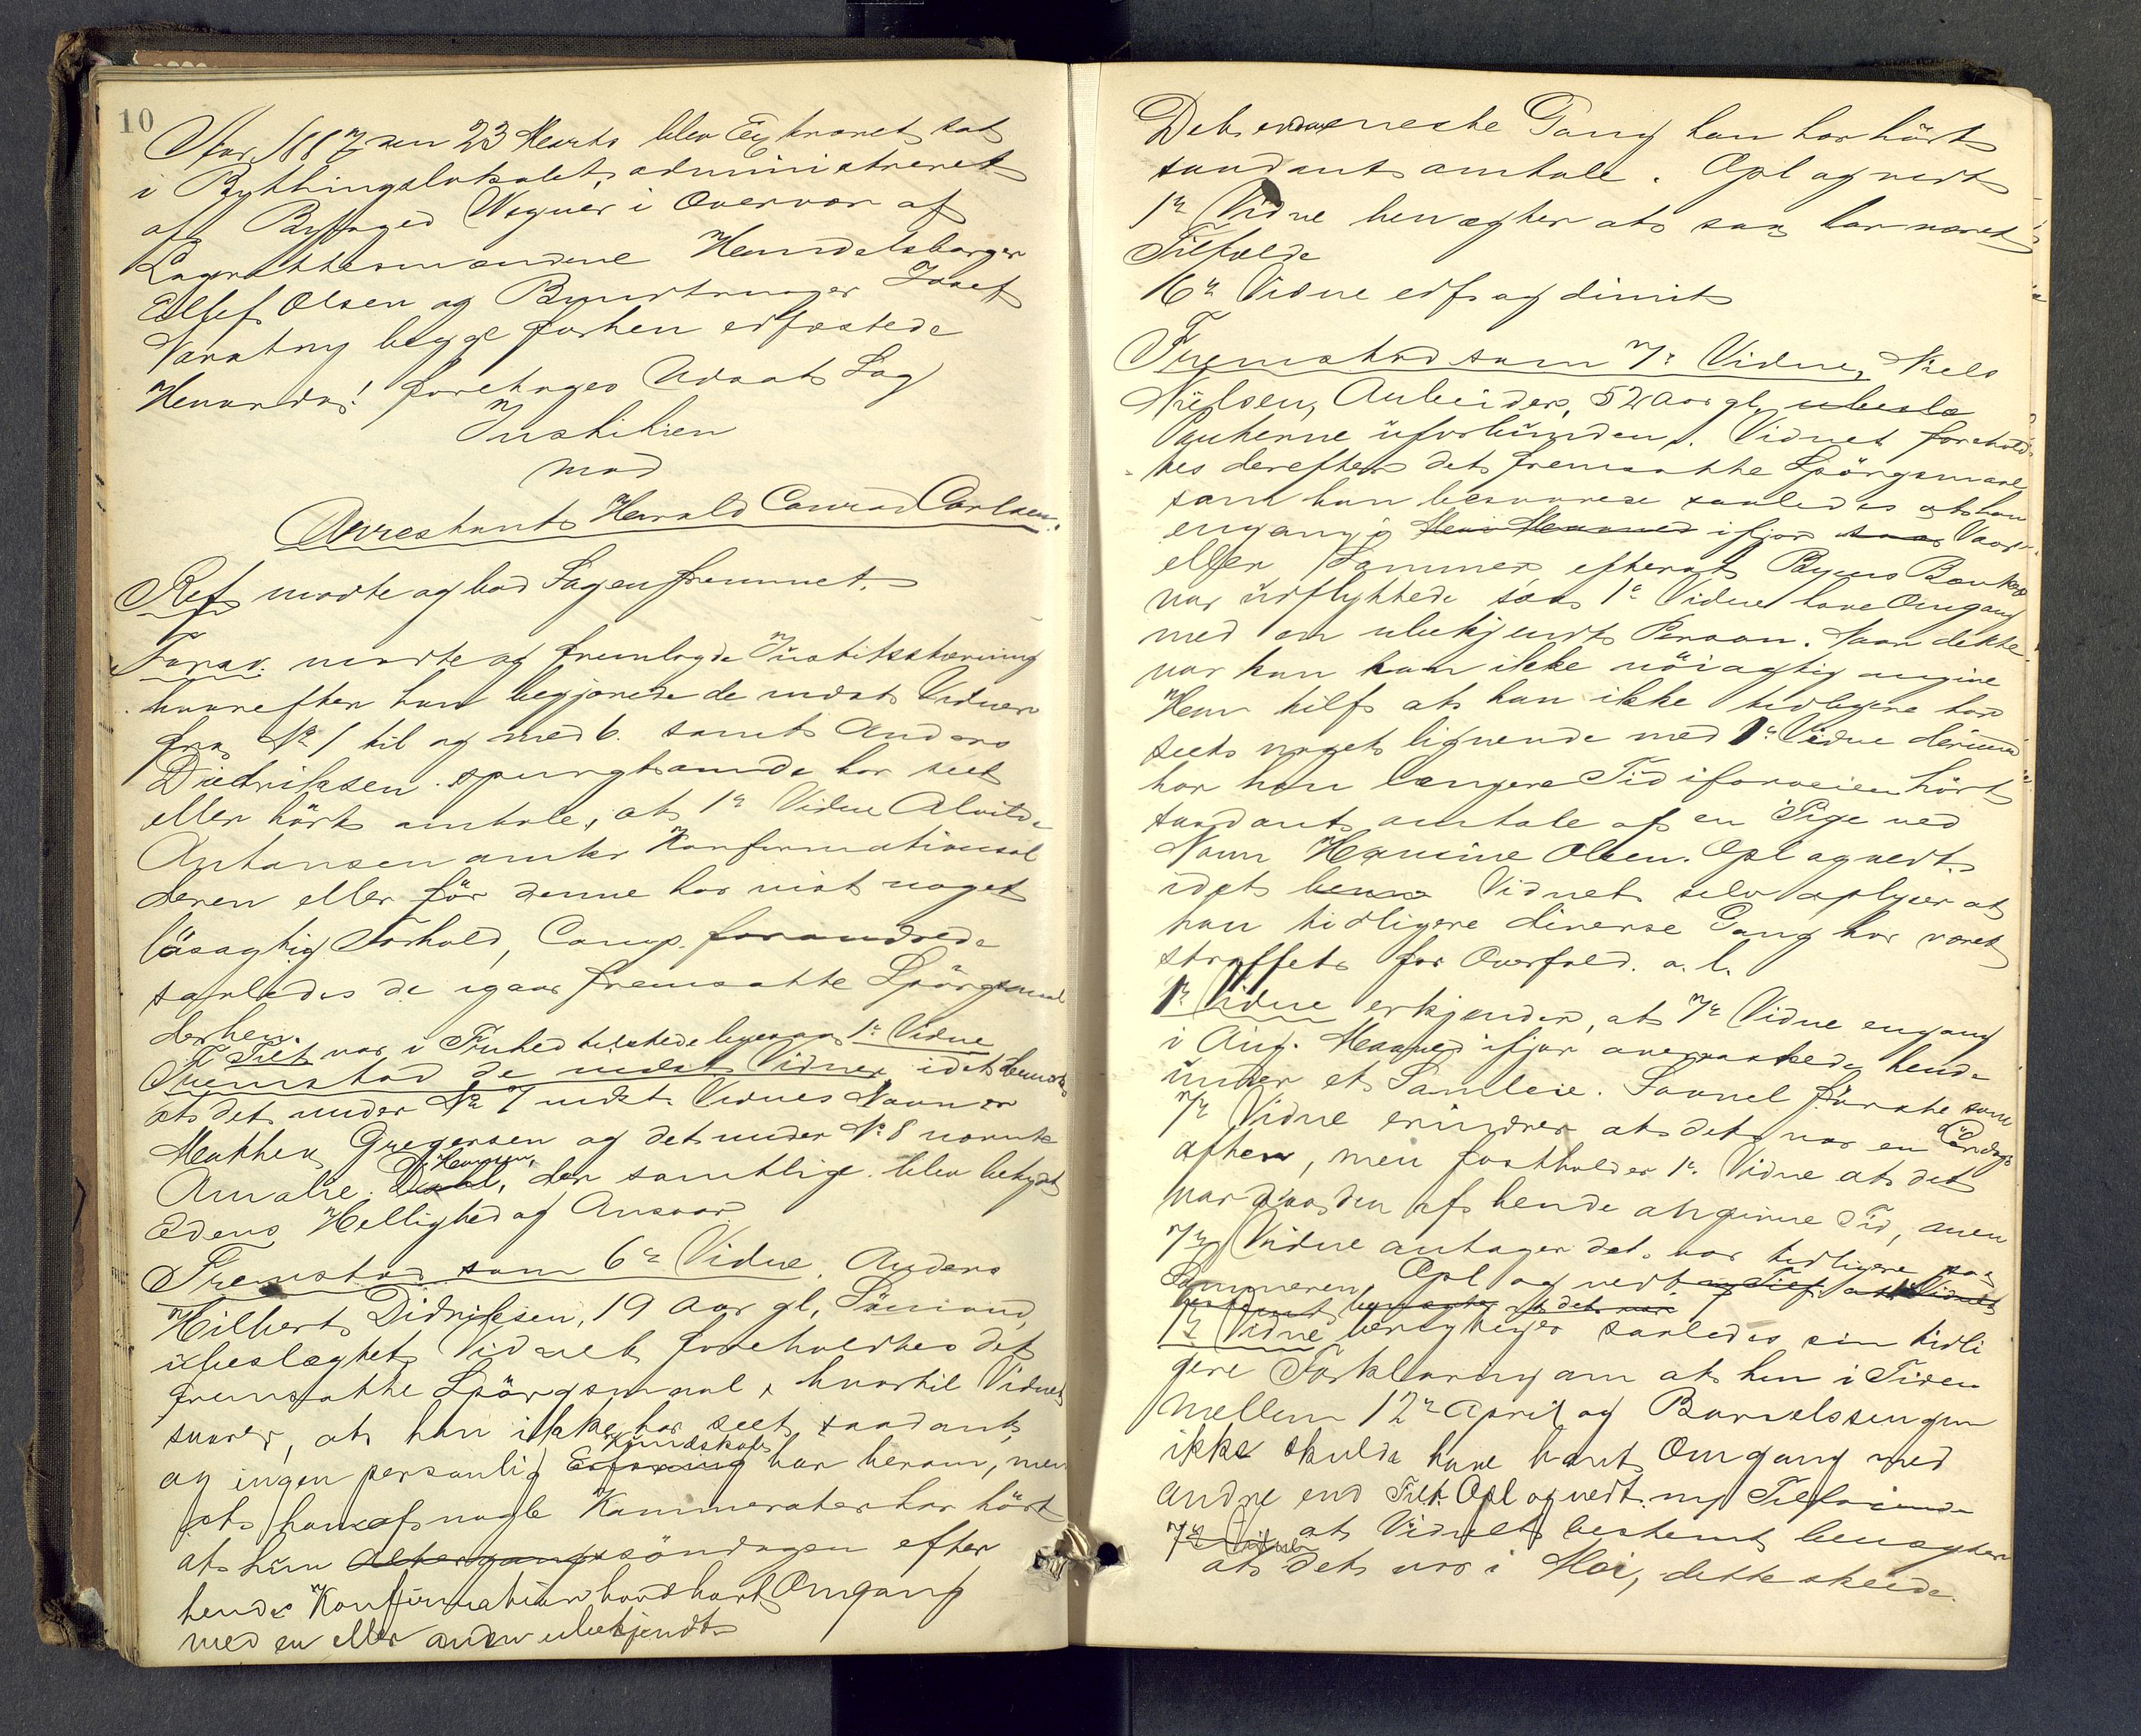 10
Aar 1887 den 23 Marts blev Extraret sat
i Bythingslokalet, administreret
af Byfoged Wegner i Overvær af
Lagrettesmændene Handelsborger
Ellef Olsen og Josef
begge forhen edfæstede
Hvorda! foretoges Udsat Sag
Justitien
mod
Arrestant Harald Conrad Carlsen.
Ref mødte og bad Sagen fremmet.
Forsv. mødte og fremlagde Justitsstævning
hvorefter han begjærede de indst Vidner
fra No 1 til og med 6. samt Anders
Diedriksen spurgt om de har seet
eller hørt omtale, at 1e Vidne Alvilde
Antonsen under Konfirmational
deren eller før denne har vist noget
løsagtig Forhold, Comp. forandrede
saaledes de igaar fremsatte Spørgsmaal
derhen.
Tilt var i Frihed tilstede ligesaa 1e Vidne
Fremstod de indst. Vidner idet bemærk
at det under No 7 indst. Vidnes Navn er
Mathea Gregersen og det under No 8 nævnte
Amalie Dahl, Hansen, der samtlige blev betydet
Edens Hellighed og Ansvar
Fremstod som 6e Vidne. Anders
Hilbert Didriksen, 19 Aar gl, Sømand,
ubeslægtet Vidnet foreholdtes det
fremsatte Spørgsmaal, hvortil Vidnet
svarer, at han ikke har seet saadant,
og ingen personlig Erfaring Kundskab har herom, men
at han af nogle Kammerater har hørt
at hun Altergangssøndagen efter
hendes Konfirmation havde havt Omgang
med en eller anden ubekjendt
Det eneste Gang han har hørt
saadant omtale. Opl og vedt
1e Vidne benægter at saa har været
Tilfælde
6e Vidne edf og dimit
Fremstod som 7e Vidne, Niels
Nielsen, Arbeider, 52 Aar gl, ubesla
Parterne uforbunden. Vidnet forehold
tes derefter det fremsatte Spørgsmaal
som han besvarere saaledes at han
engang i Mai Maaned ifjor Vaar
eller Sommer efterat Byens Bank
var udflyttede saa 1e Vidne have Omgang
med en ubekjendt Person. Naar dette
var kan han ikke nøiagtig angive
Han tilf at han ikke tidligere har
seet noget lignende med 1e Vidne derimod
har han længere Tid iforveien hørt
saadant omtale af en Pige ved
Navn Hermine Olsen. Opl og vedt.
idet Vidnet selv oplyser at
han tidligere diverse Gang har været
straffet for Overfald. o. l.
1e Vidne erkjender, at 7e Vidne engang
i Aug. Maaned ifjor overraskede hende
under et Samleie. Saavel første som
7e Vidne erindrer at det var en Lørdags
aften, men fastholder 1e Vidne at det
var paa den af hende angivne Tid, men
7e Vidne antager det var tidligere paa
Sommeren, Opl og vedt
1e Vidne benægter saaledes sin tidli
gere Forklaring om at hun i Tiden
mellem 12e April og Barselssengen
ikke skulde have havt Omgang med
andre end Tilt. Opl og vedt. m Tilføiende
7e Vidne at Vidnet bestemt benægter
at det var i Mai, dette skede.